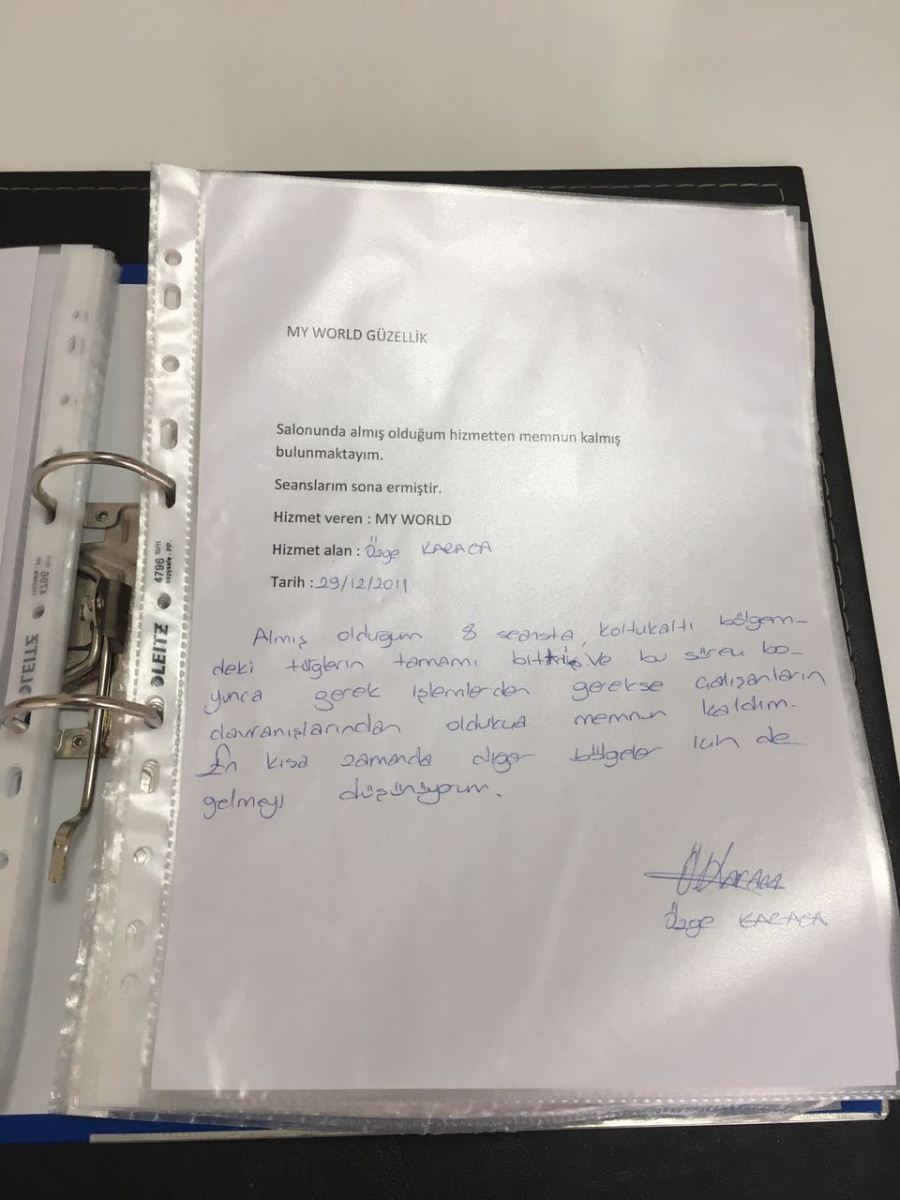 MY WORLD GÜZELLİK
Salonunda almış olduğum hizmetten memnun kalmış
bulunmaktayım.
Seanslarım sona ermiştir.
Hizmet veren : MY WORLD
Hizmet alan : Özge KARACA
Tarih : 29/12/2011
Almış olduğum 8 seansta, koltukaltı bölgem-
deki tüylerin tamamı bitti ve bu süreu bo-
yunca gerek işlemlerden gerekse çalışanların
davranışlarından oldukca memnun kaldım.
En kısa zamanda diğer bölgeler için de
gelmeyi düşünüyorum.
Ö.KARACA
Özge KARACA
LEITZ
4796
LEITZ
4796